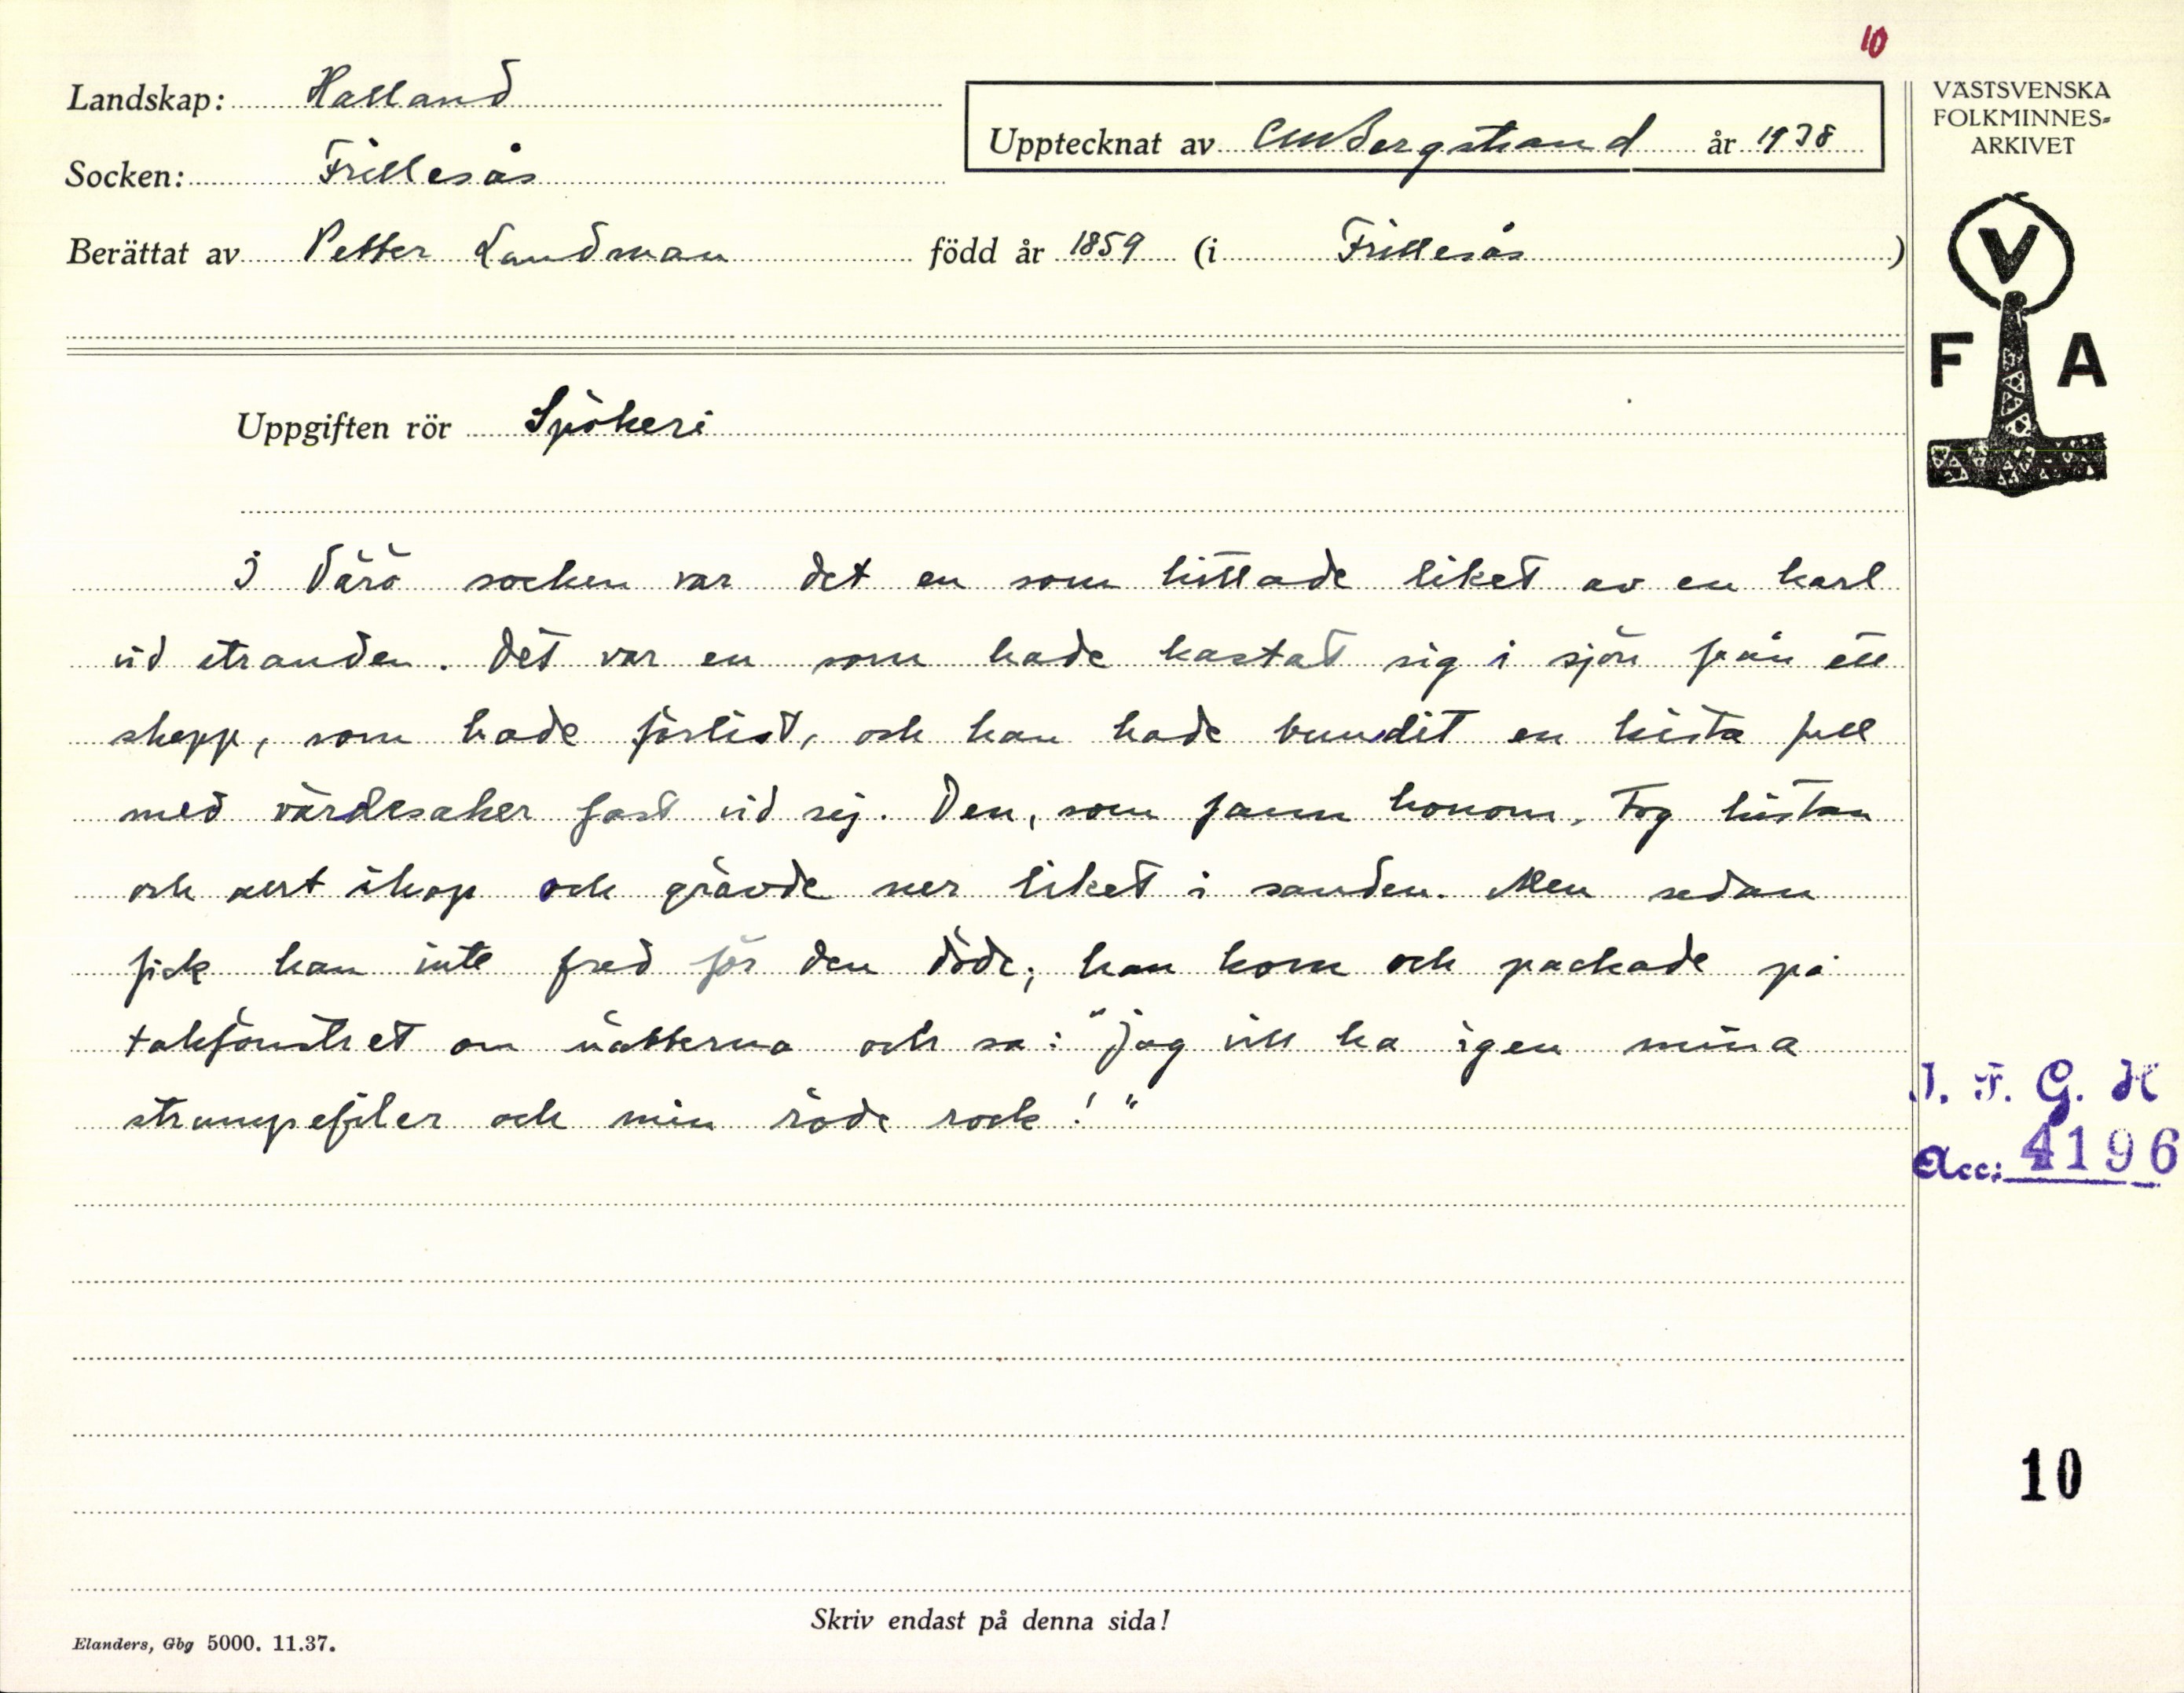 10
Landskap: Halland
Upptecknat av CMBergstrand år 1938
Socken: Frillesås
Berättat av Petter Landman född år 1859 (i Frillesås)
VÄSTSVENSKA
FOLKMINNES-
ARKIVET
V
F A
Uppgiften rör Spökeri
I Värö socken var det en som hittade liket av en karl
vid stranden. Det var en som hade kastat sig i sjön från ett
skepp, som hade förlist, och han hade bundit en kista full
med värdesaker fast vid sej. Den, som fann honom, tog kistan
och ihop och grävde ner liket i sanden. Men sedan
fick han inte fred för den döde; han kom och packade på
takfönstret om nätterna och sa: "Jag vill ha igen mina
och min röde rock!"
I. F. G. H
Acc: 4196
10
Skriv endast på denna sida!
Elanders, Gbg 5000. 11.37.